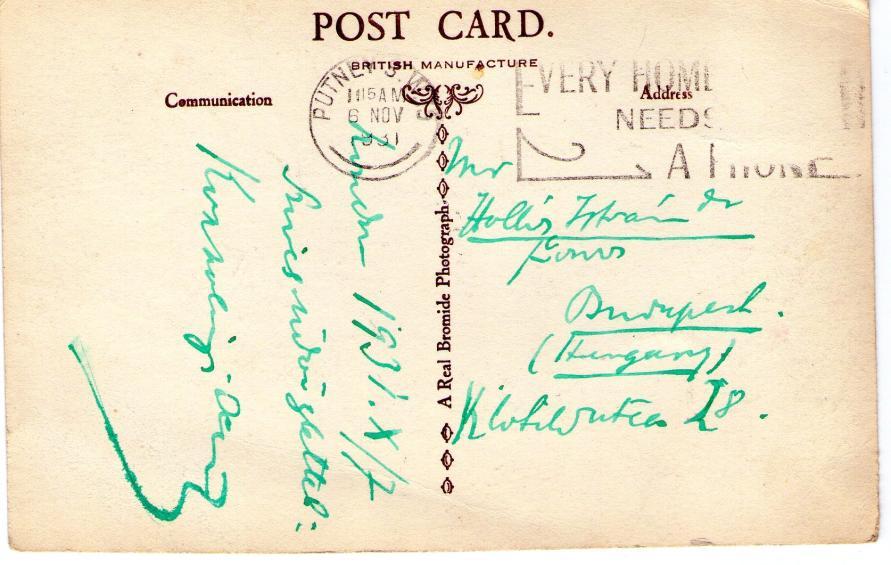 POST CARD.
BRITISH MANUFACTURE
Communication
Address
PUTNEY S.W.
11 15 AM
6 NOV
1931
EVERY HOME
NEEDS
A PHONE
A Real Bromide Photograph.
London 1931. X/7
Szíves üdvözlettel:
Mr
Hollós István dr
Budapest.
(Hungary)
Klotild utca